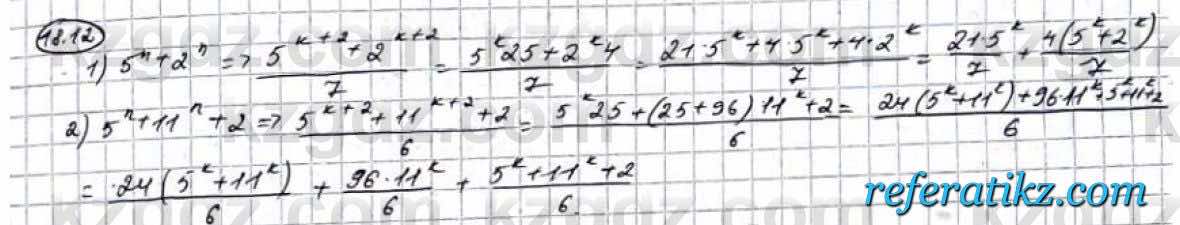 18.12
1) 5ⁿ+2ⁿ => (5^(k+2)+2^(k+2))/7 = (5^k 25+2^k 4)/7 = (21·5^k+4·5^k+4·2^k)/7 = (21·5^k)/7 + 4(5^k+2^k)/7
2) 5ⁿ+11ⁿ+2 => (5^(k+2)+11^(k+2)+2)/6 = (5^k 25+(25+96)11^k+2)/6 = (24(5^k+11^k)+96·11^k+5^k+11^k+2)/6
= 24(5^k+11^k)/6 + (96·11^k)/6 + (5^k+11^k+2)/6
referatikz.com